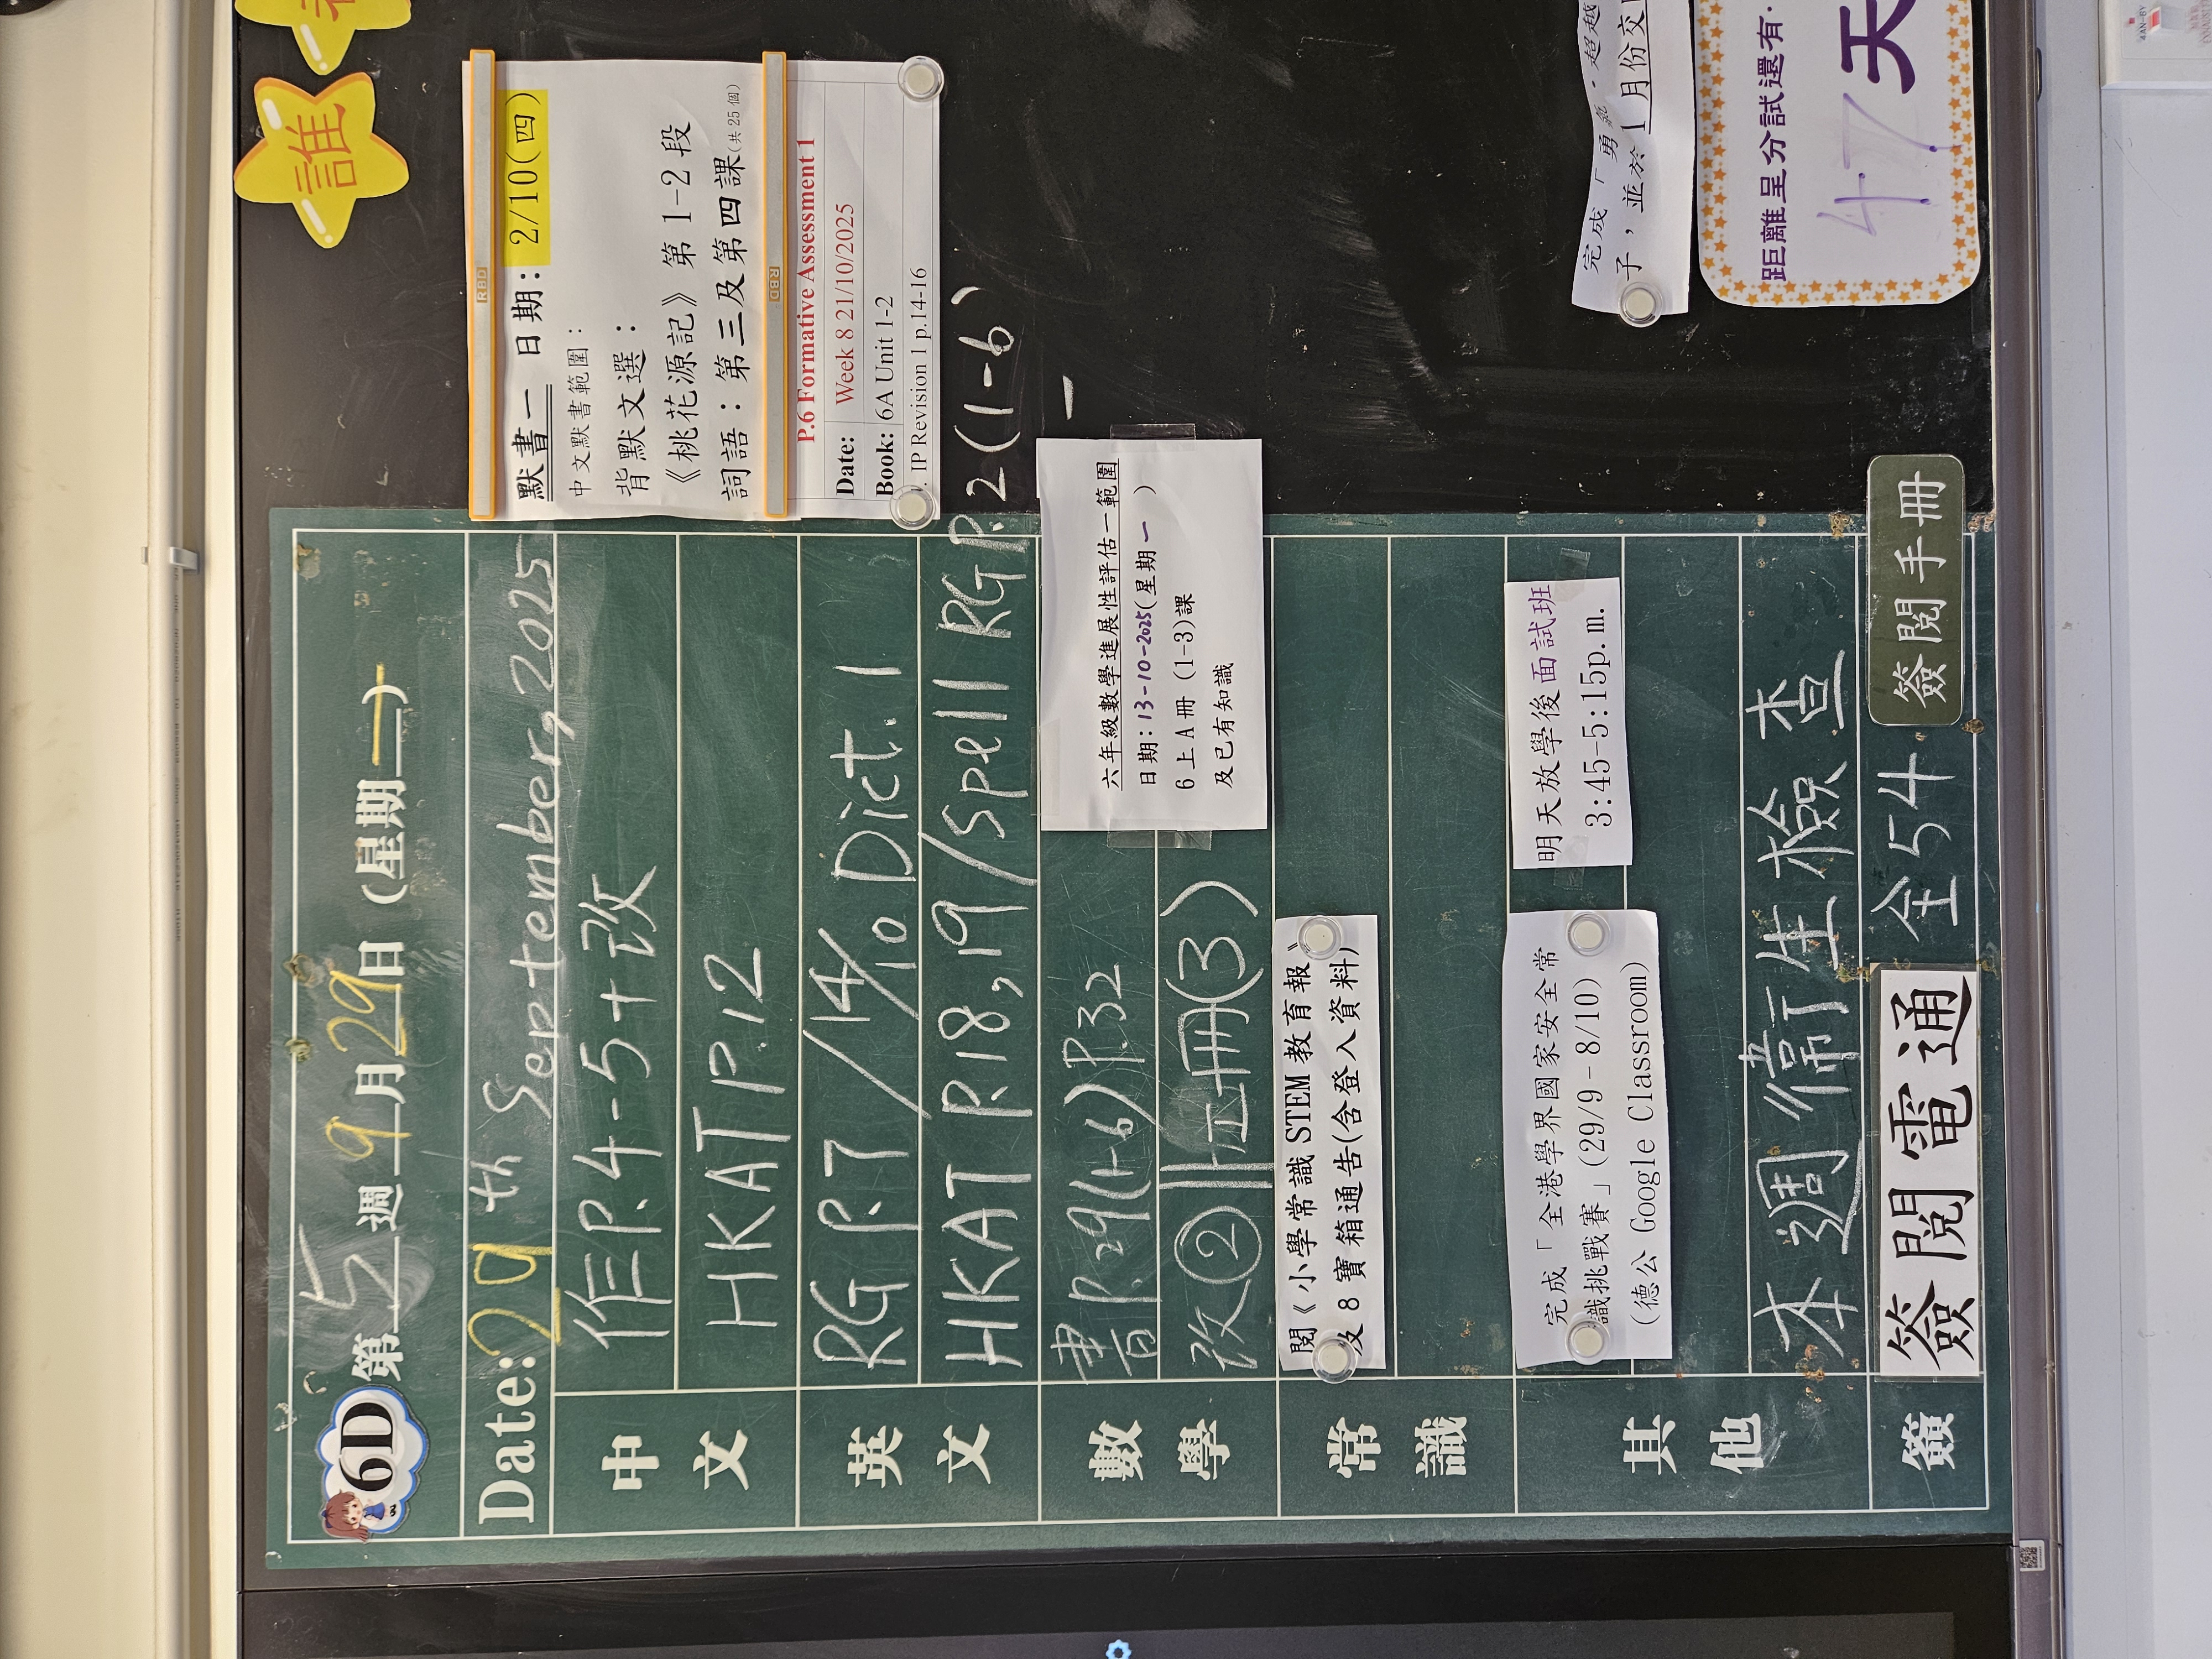 6D
第 5 週 9 月 29 日 (星期 一 )
Date: 29 th September, 2025
中文
作P.4-5+改
HKAT P.12
英文
RG P.7 / 14/10 Dict. 1
HKAT P.18,19 / Spell RG P.2(1-6)
數學
書P.29(1-6) P.32
改②
(3)
六年級數學進展性評估一範圍
日期: 13-10-2025(星期 一 )
6上A冊 (1-3)課
及已有知識
常識
閱《小學常識 STEM 教育報》
及 8 寶箱通告(含登入資料)
其他
完成「全港學界國家安全常
識挑戰賽」(29/9 - 8/10)
(德公 Google Classroom)
明天放學後面試班
3:45-5:15p.m.
本週衞生檢查
簽
簽閱電通
全54
簽閱手冊
誰
默書一 日期: 2/10(四)
中文默書範圍:
背默文選:
《桃花源記》第 1-2 段
詞語: 第三及第四課(共 25 個)
RBD
RBD
P.6 Formative Assessment 1
Date: Week 8 21/10/2025
Book: 6A Unit 1-2
IP Revision 1 p.14-16
完成「勇
超越
子,並於 1 月份交
距離呈分試還有
47 天